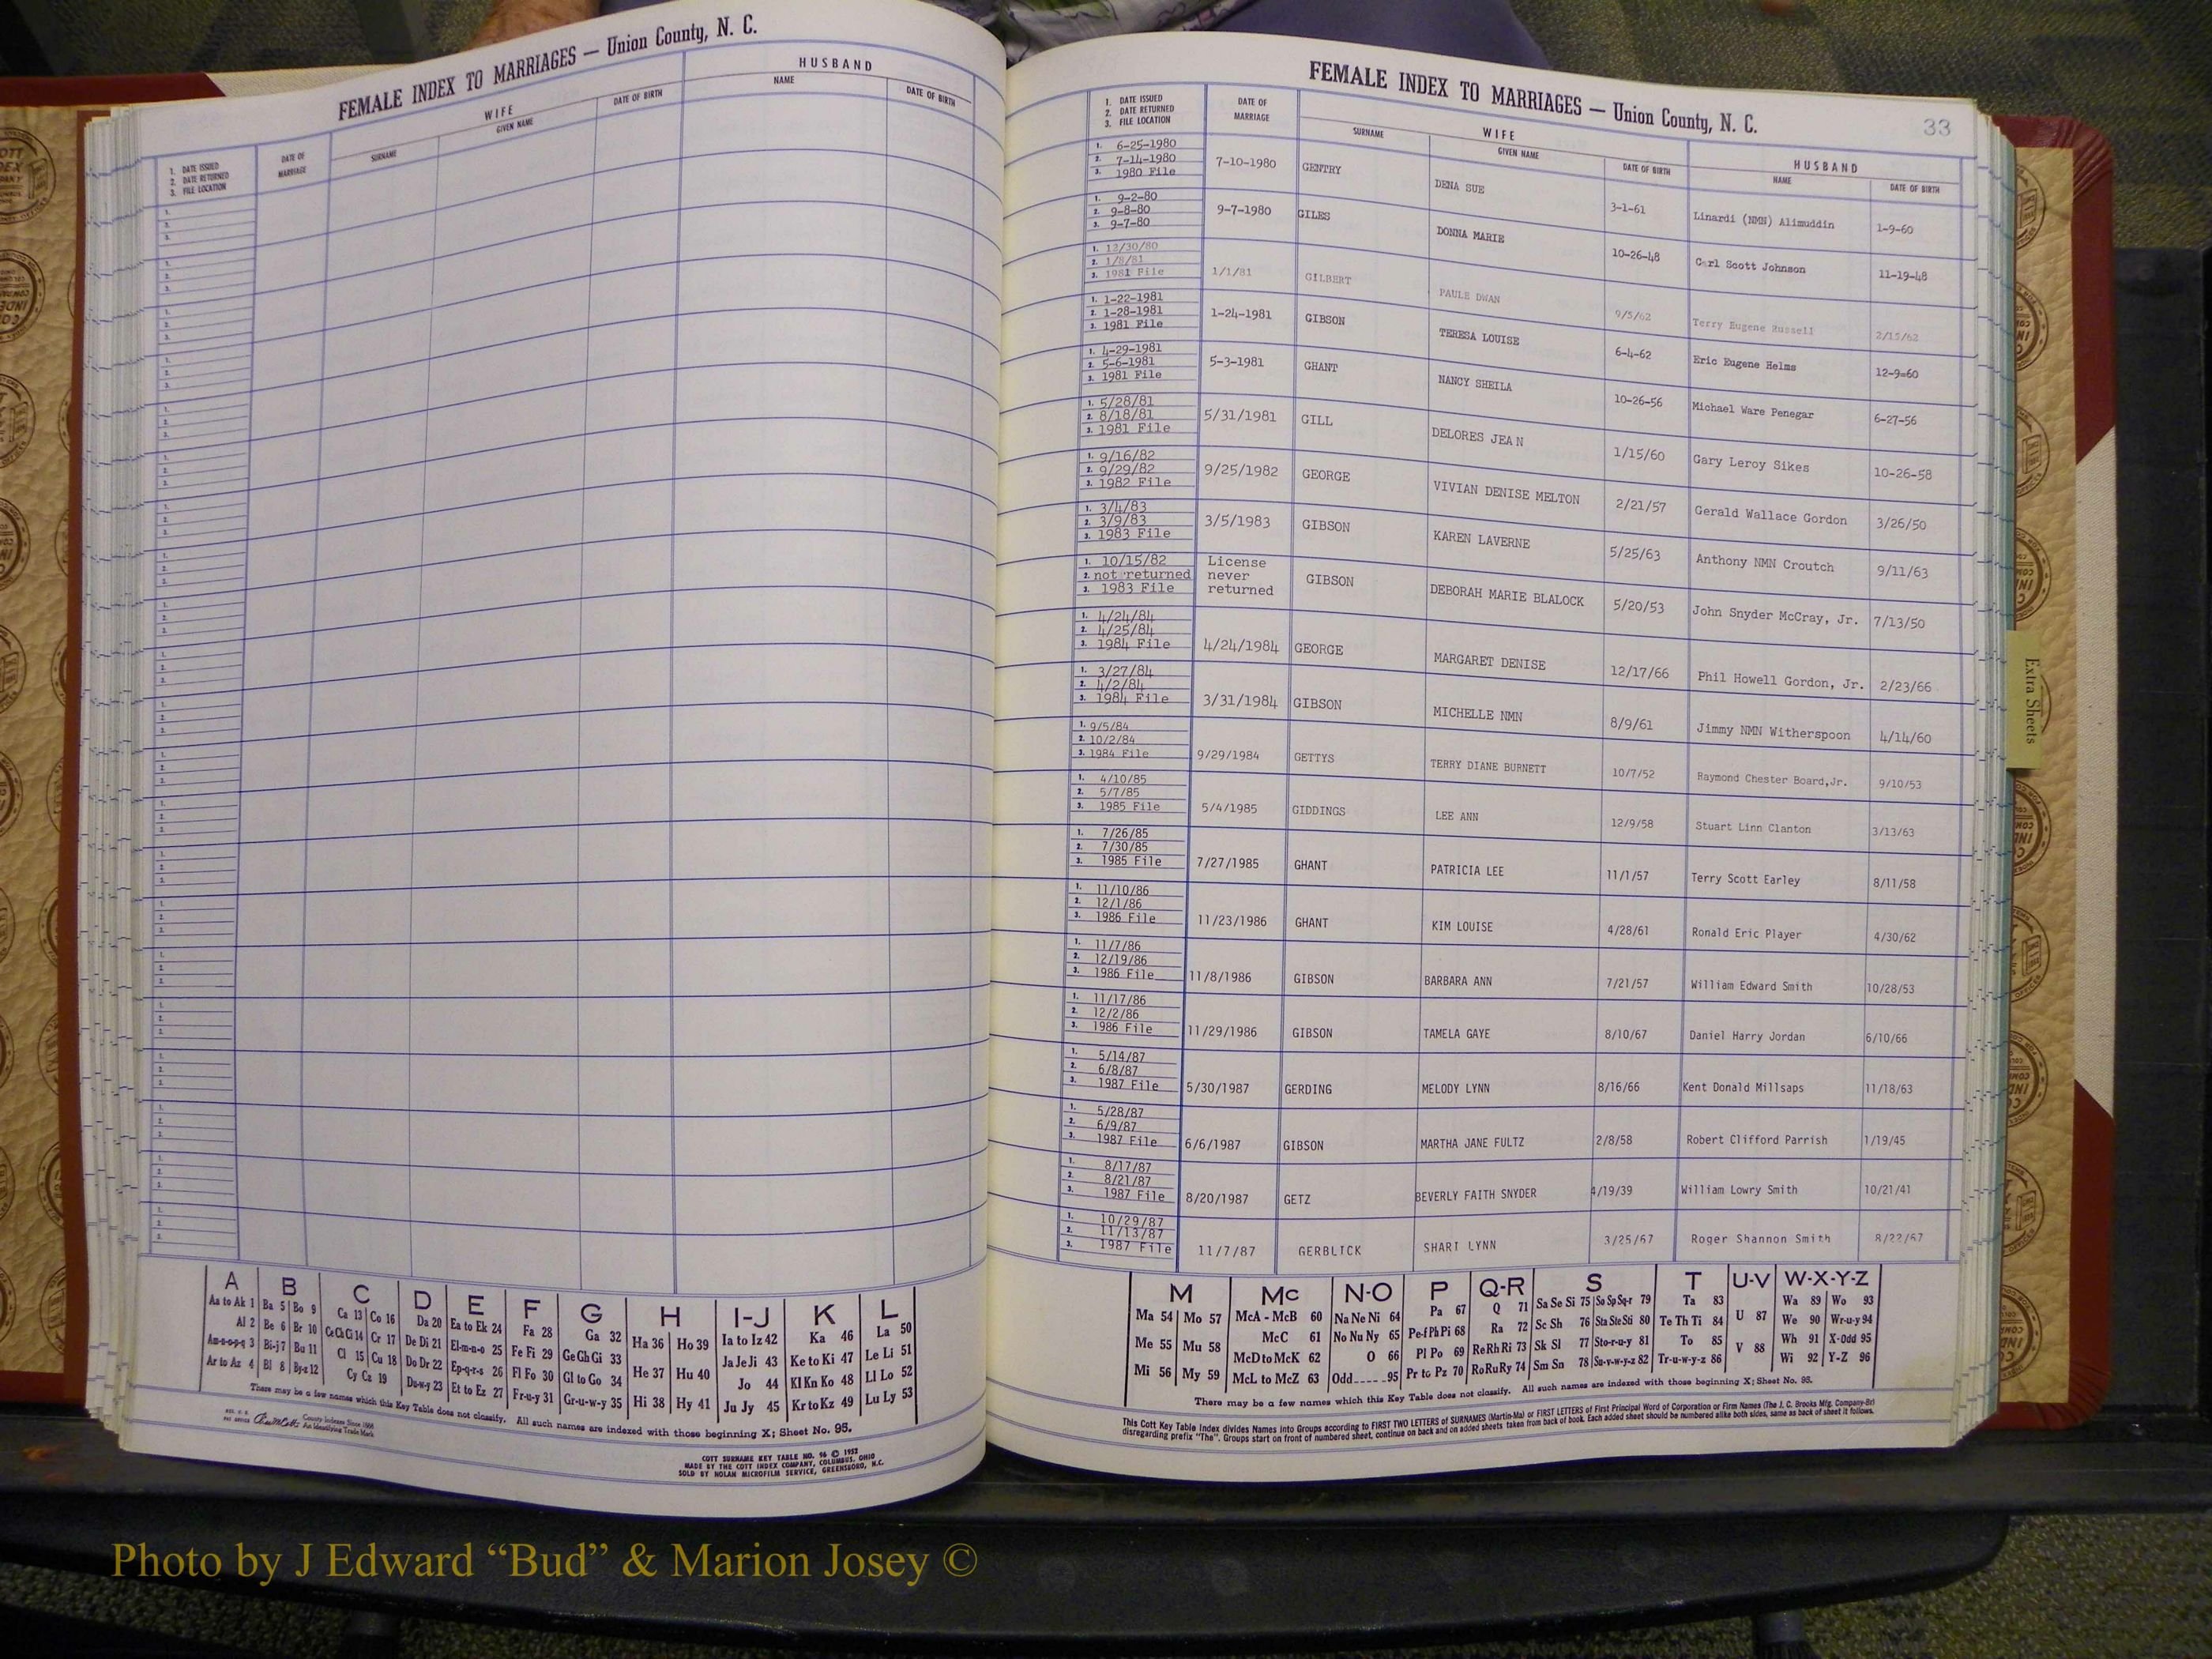 FEMALE INDEX TO MARRIAGES — Union County, N. C.
WIFE HUSBAND
1. DATE ISSUED 2. DATE RETURNED 3. FILE LOCATION DATE OF MARRIAGE SURNAME GIVEN NAME DATE OF BIRTH NAME DATE OF BIRTH
A B C D E F G H I-J K L
Aa to Ak 1 Ba 5 Bo 9 Ca 13 Co 16 Da 20 Ea to Ek 24 Fa 28 Ga 32 Ha 36 Ho 39 Ia to Iz 42 Ka 46 La 50
Al 2 Be 6 Br 10 Ce Ch Ci 14 Cr 17 De Di 21 El-m-n-o 25 Fe Fi 29 Ge Gh Gi 33 He 37 Hu 40 Ja Je Ji 43 Ke to Ki 47 Le Li 51
Am-n-o-p-q 3 Bi-j 7 Bu 11 Cl 15 Cu 18 Do Dr 22 Ep-q-r-s 26 Fl Fo 30 Gl to Go 34 Jo 44 Kl Kn Ko 48 Ll Lo 52
Ar to Az 4 Bl 8 By-z 12 Cy Cz 19 Du-w-y 23 Et to Ez 27 Fr-u-y 31 Gr-u-w-y 35 Hi 38 Hy 41 Ju Jy 45 Kr to Kz 49 Lu Ly 53
There may be a few names which this Key Table does not classify. All such names are indexed with those beginning X; Sheet No. 95.
County Indexes Since 1888
An Identifying Trade Mark
COTT SURNAME KEY TABLE NO. 96 © 1952
MADE BY THE COTT INDEX COMPANY, COLUMBUS, OHIO
SOLD BY NOLAN MICROFILM SERVICE, GREENSBORO, N.C.
FEMALE INDEX TO MARRIAGES — Union County, N. C.
33
WIFE HUSBAND
1. DATE ISSUED 2. DATE RETURNED 3. FILE LOCATION DATE OF MARRIAGE SURNAME GIVEN NAME DATE OF BIRTH NAME DATE OF BIRTH
1. 6-25-1980 2. 7-14-1980 3. 1980 File 7-10-1980 GENTRY DENA SUE 3-1-61 Linardi (NMN) Alimuddin 1-9-60
1. 9-2-80 2. 9-8-80 3. 9-7-80 9-7-1980 GILES DONNA MARIE 10-26-48 Carl Scott Johnson 11-19-48
1. 12/30/80 2. 1/8/81 3. 1981 File 1/1/81 GILBERT PAULE DWAN 9/5/62 Terry Eugene Russell 2/15/62
1. 1-22-1981 2. 1-28-1981 3. 1981 File 1-24-1981 GIBSON TERESA LOUISE 6-4-62 Eric Eugene Helms 12-9=60
1. 4-29-1981 2. 5-6-1981 3. 1981 File 5-3-1981 GHANT NANCY SHEILA 10-26-56 Michael Ware Penegar 6-27-56
1. 5/28/81 2. 8/18/81 3. 1981 File 5/31/1981 GILL DELORES JEAN 1/15/60 Gary Leroy Sikes 10-26-58
1. 9/16/82 2. 9/29/82 3. 1982 File 9/25/1982 GEORGE VIVIAN DENISE MELTON 2/21/57 Gerald Wallace Gordon 3/26/50
1. 3/4/83 2. 3/9/83 3. 1983 File 3/5/1983 GIBSON KAREN LAVERNE 5/25/63 Anthony NMN Croutch 9/11/63
1. 10/15/82 2. not returned 3. 1983 File License never returned GIBSON DEBORAH MARIE BLALOCK 5/20/53 John Snyder McCray, Jr. 7/13/50
1. 4/24/84 2. 4/25/84 3. 1984 File 4/24/1984 GEORGE MARGARET DENISE 12/17/66 Phil Howell Gordon, Jr. 2/23/66
1. 3/27/84 2. 4/2/84 3. 1984 File 3/31/1984 GIBSON MICHELLE NMN 8/9/61 Jimmy NMN Witherspoon 4/14/60
1. 9/5/84 2. 10/2/84 3. 1984 File 9/29/1984 GETTYS TERRY DIANE BURNETT 10/7/52 Raymond Chester Board,Jr. 9/10/53
1. 4/10/85 2. 5/7/85 3. 1985 File 5/4/1985 GIDDINGS LEE ANN 12/9/58 Stuart Linn Clanton 3/13/63
1. 7/26/85 2. 7/30/85 3. 1985 File 7/27/1985 GHANT PATRICIA LEE 11/1/57 Terry Scott Earley 8/11/58
1. 11/10/86 2. 12/1/86 3. 1986 File 11/23/1986 GHANT KIM LOUISE 4/28/61 Ronald Eric Player 4/30/62
1. 11/7/86 2. 12/19/86 3. 1986 File 11/8/1986 GIBSON BARBARA ANN 7/21/57 William Edward Smith 10/28/53
1. 11/17/86 2. 12/2/86 3. 1986 File 11/29/1986 GIBSON TAMELA GAYE 8/10/67 Daniel Harry Jordan 6/10/66
1. 5/14/87 2. 6/8/87 3. 1987 File 5/30/1987 GERDING MELODY LYNN 8/16/66 Kent Donald Millsaps 11/18/63
1. 5/28/87 2. 6/9/87 3. 1987 File 6/6/1987 GIBSON MARTHA JANE FULTZ 2/8/58 Robert Clifford Parrish 1/19/45
1. 8/17/87 2. 8/21/87 3. 1987 File 8/20/1987 GETZ BEVERLY FAITH SNYDER 4/19/39 William Lowry Smith 10/21/41
1. 10/29/87 2. 11/13/87 3. 1987 File 11/7/87 GERBLICK SHARI LYNN 3/25/67 Roger Shannon Smith 8/22/67
M Mc N-O P Q-R S T U-V W-X-Y-Z
Ma 54 Mo 57 McA - McB 60 Na Ne Ni 64 Pa 67 Q 71 Sa Se Si 75 So Sp Sq-r 79 Ta 83 U 87 Wa 89 Wo 93
Me 55 Mu 58 McC 61 No Nu Ny 65 Pe-f Ph Pi 68 Ra 72 Sc Sh 76 Sta Ste Sti 80 Te Th Ti 84 We 90 Wr-u-y 94
McD to McK 62 O 66 Pl Po 69 Re Rh Ri 73 Sk Sl 77 Sto-r-u-y 81 To 85 V 88 Wh 91 X-Odd 95
Mi 56 My 59 McL to McZ 63 Odd-----95 Pr to Pz 70 Ro Ru Ry 74 Sm Sn 78 Su-v-w-y-z 82 Tr-u-w-y-z 86 Wi 92 Y-Z 96
There may be a few names which this Key Table does not classify. All such names are indexed with those beginning X; Sheet No. 95.
This Cott Key Table Index divides Names into Groups according to FIRST TWO LETTERS of SURNAMES (Martin-Ma) or FIRST LETTERS of First Principal Word of Corporation or Firm Names (The J. C. Brooks Mfg. Company-Br)
disregarding prefix "The". Groups start on front of numbered sheet, continue on back and on added sheets taken from back of book. Each added sheet should be numbered alike both sides, same as back of sheet it follows.
Extra Sheets
Photo by J Edward “Bud” & Marion Josey ©